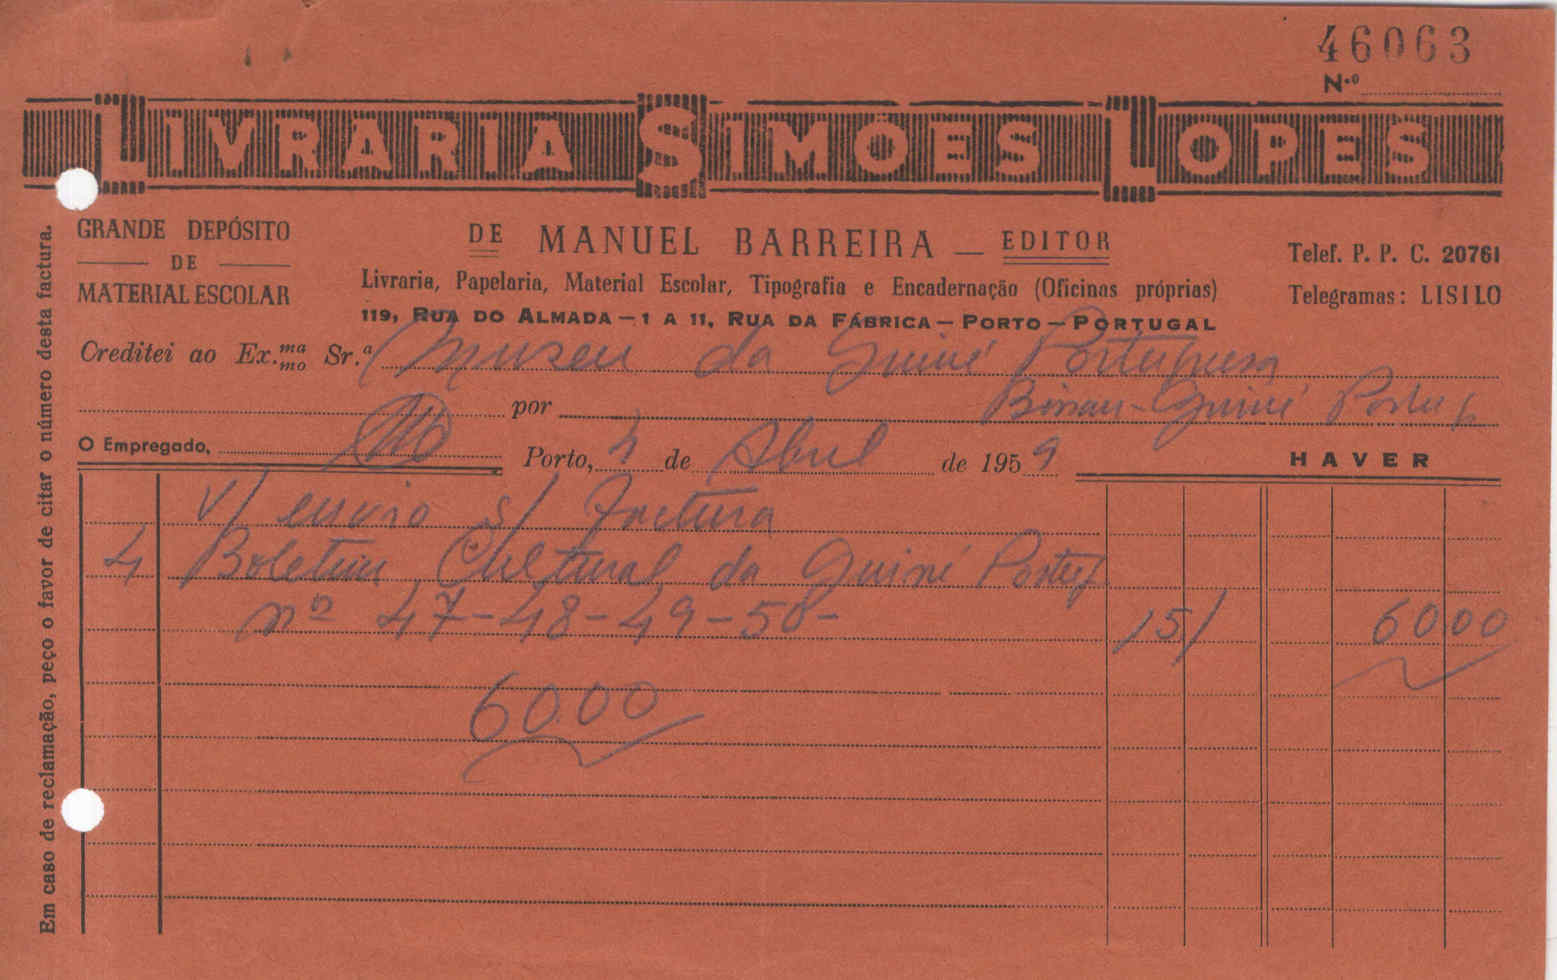 46063
N.º
LIVRARIA SIMÕES LOPES
GRANDE DEPÓSITO
DE
MATERIAL ESCOLAR
DE MANUEL BARREIRA — EDITOR
Livraria, Papelaria, Material Escolar, Tipografia e Encadernação (Oficinas próprias)
119, RUA DO ALMADA — 1 A 11, RUA DA FÁBRICA — PORTO — PORTUGAL
Telef. P. P. C. 20761
Telegramas: LISILO
Creditei ao Ex.ma mo Sr.ª Museu da Guiné Portuguesa
por Bissau - Guiné Portug
O Empregado,
Porto, de Abril de 1959
HAVER
V/ envio s/ factura
4 Boletim Cultural da Guiné Portug
nº 47-48-49-50- 15/ 60 00
60.00
Em caso de reclamação, peço o favor de citar o número desta factura.